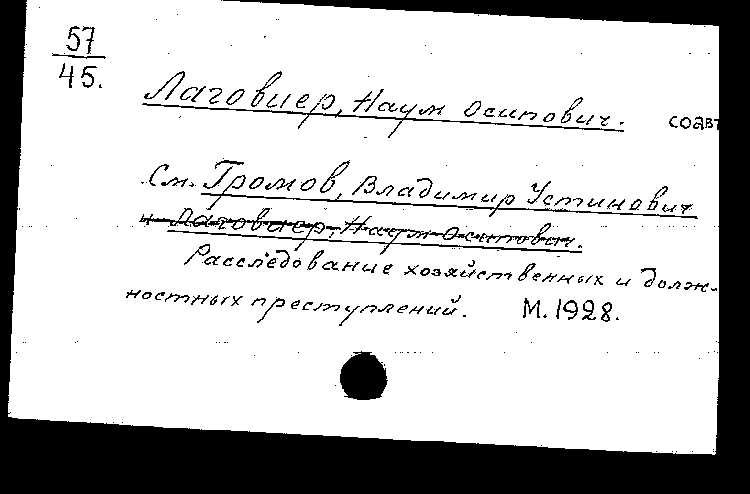 57
45.
Лаговиер, Наум Осипович. соавт
См. Громов, Владимир Устинович
и Лаговиер, Наум Осипович.
Расследование хозяйственных и долж-
ностных преступлений. М. 1928.